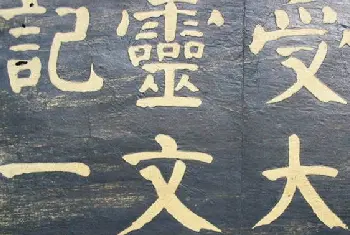 受大
靈文
記一